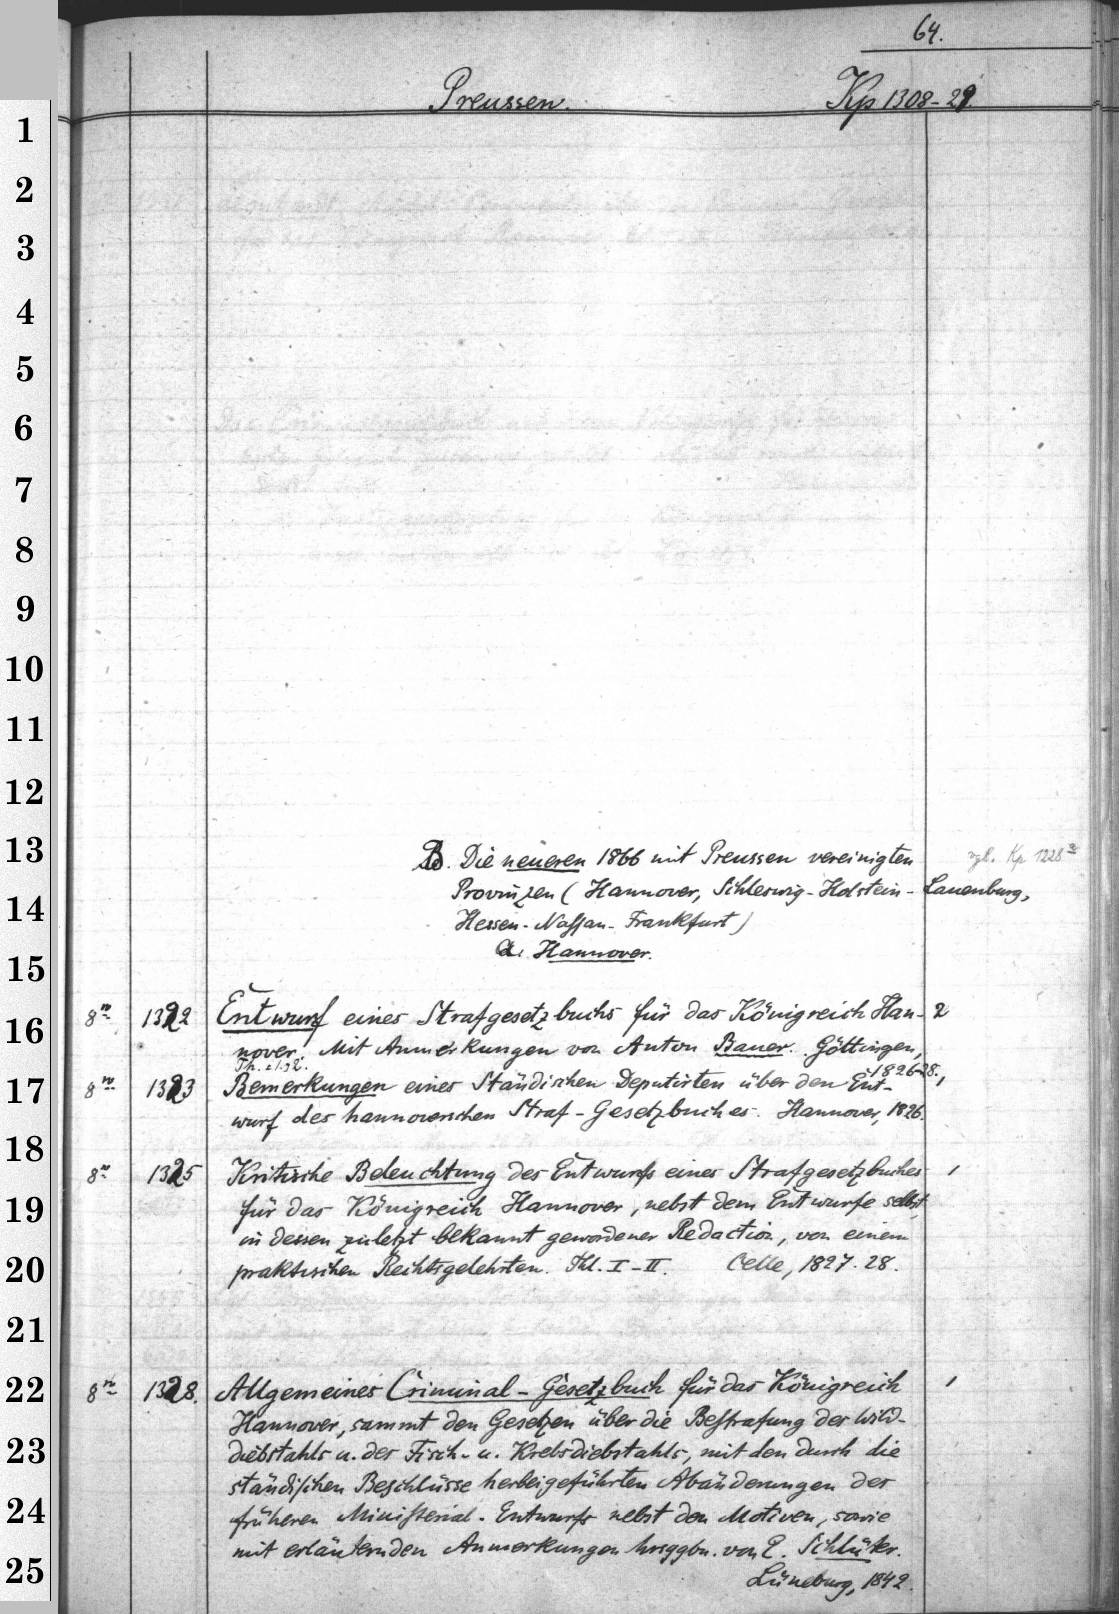 64.
Preussen. Kp 1308-29.
1
2
3
4
5
6
7
8
9
10
11
12
13
14
15
16
17
18
19
20
21
22
23
24
25
B. Die neueren 1866 mit Preussen vereinigten vgl. Kp 1228
Provinzen (Hannover, Schleswig-Holstein-Lauenburg,
Hessen-Nassau-Frankfurt)
a. Hannover.
8º 1322 Entwurf eines Strafgesetzbuchs für das Königreich Han- 2
nover. Mit Anmerkungen von Anton Bauer. Göttingen,
Th. 1.2. 1826-28.,
8º 1323 Bemerkungen eines Ständischen Deputirten über den Ent-
wurf des hannoverschen Straf-Gesetzbuches. Hannover, 1826.
8º 1325 Kritische Beleuchtung des Entwurfs eines Strafgesetzbuches 1
für das Königreich Hannover, nebst dem Entwurfe selbst,
in dessen zuletzt bekannt gewordener Redaction, von einem
praktischen Rechtsgelehrten. Thl. I-II. Celle, 1827.28.
8º 1328. Allgemeines Criminal-Gesetzbuch für das Königreich 1
Hannover, sammt den Gesetzen über die Bestrafung der Wild-
diebstahls u. des Fisch- u. Krebsdiebstahls, mit den durch die
ständischen Beschlüsse herbeigeführten Abänderungen des
früheren Ministerial-Entwurfs nebst den Motiven, sowie
mit erläuternden Anmerkungen hrsggbn. von E. Schlüter.
Lüneburg, 1842.